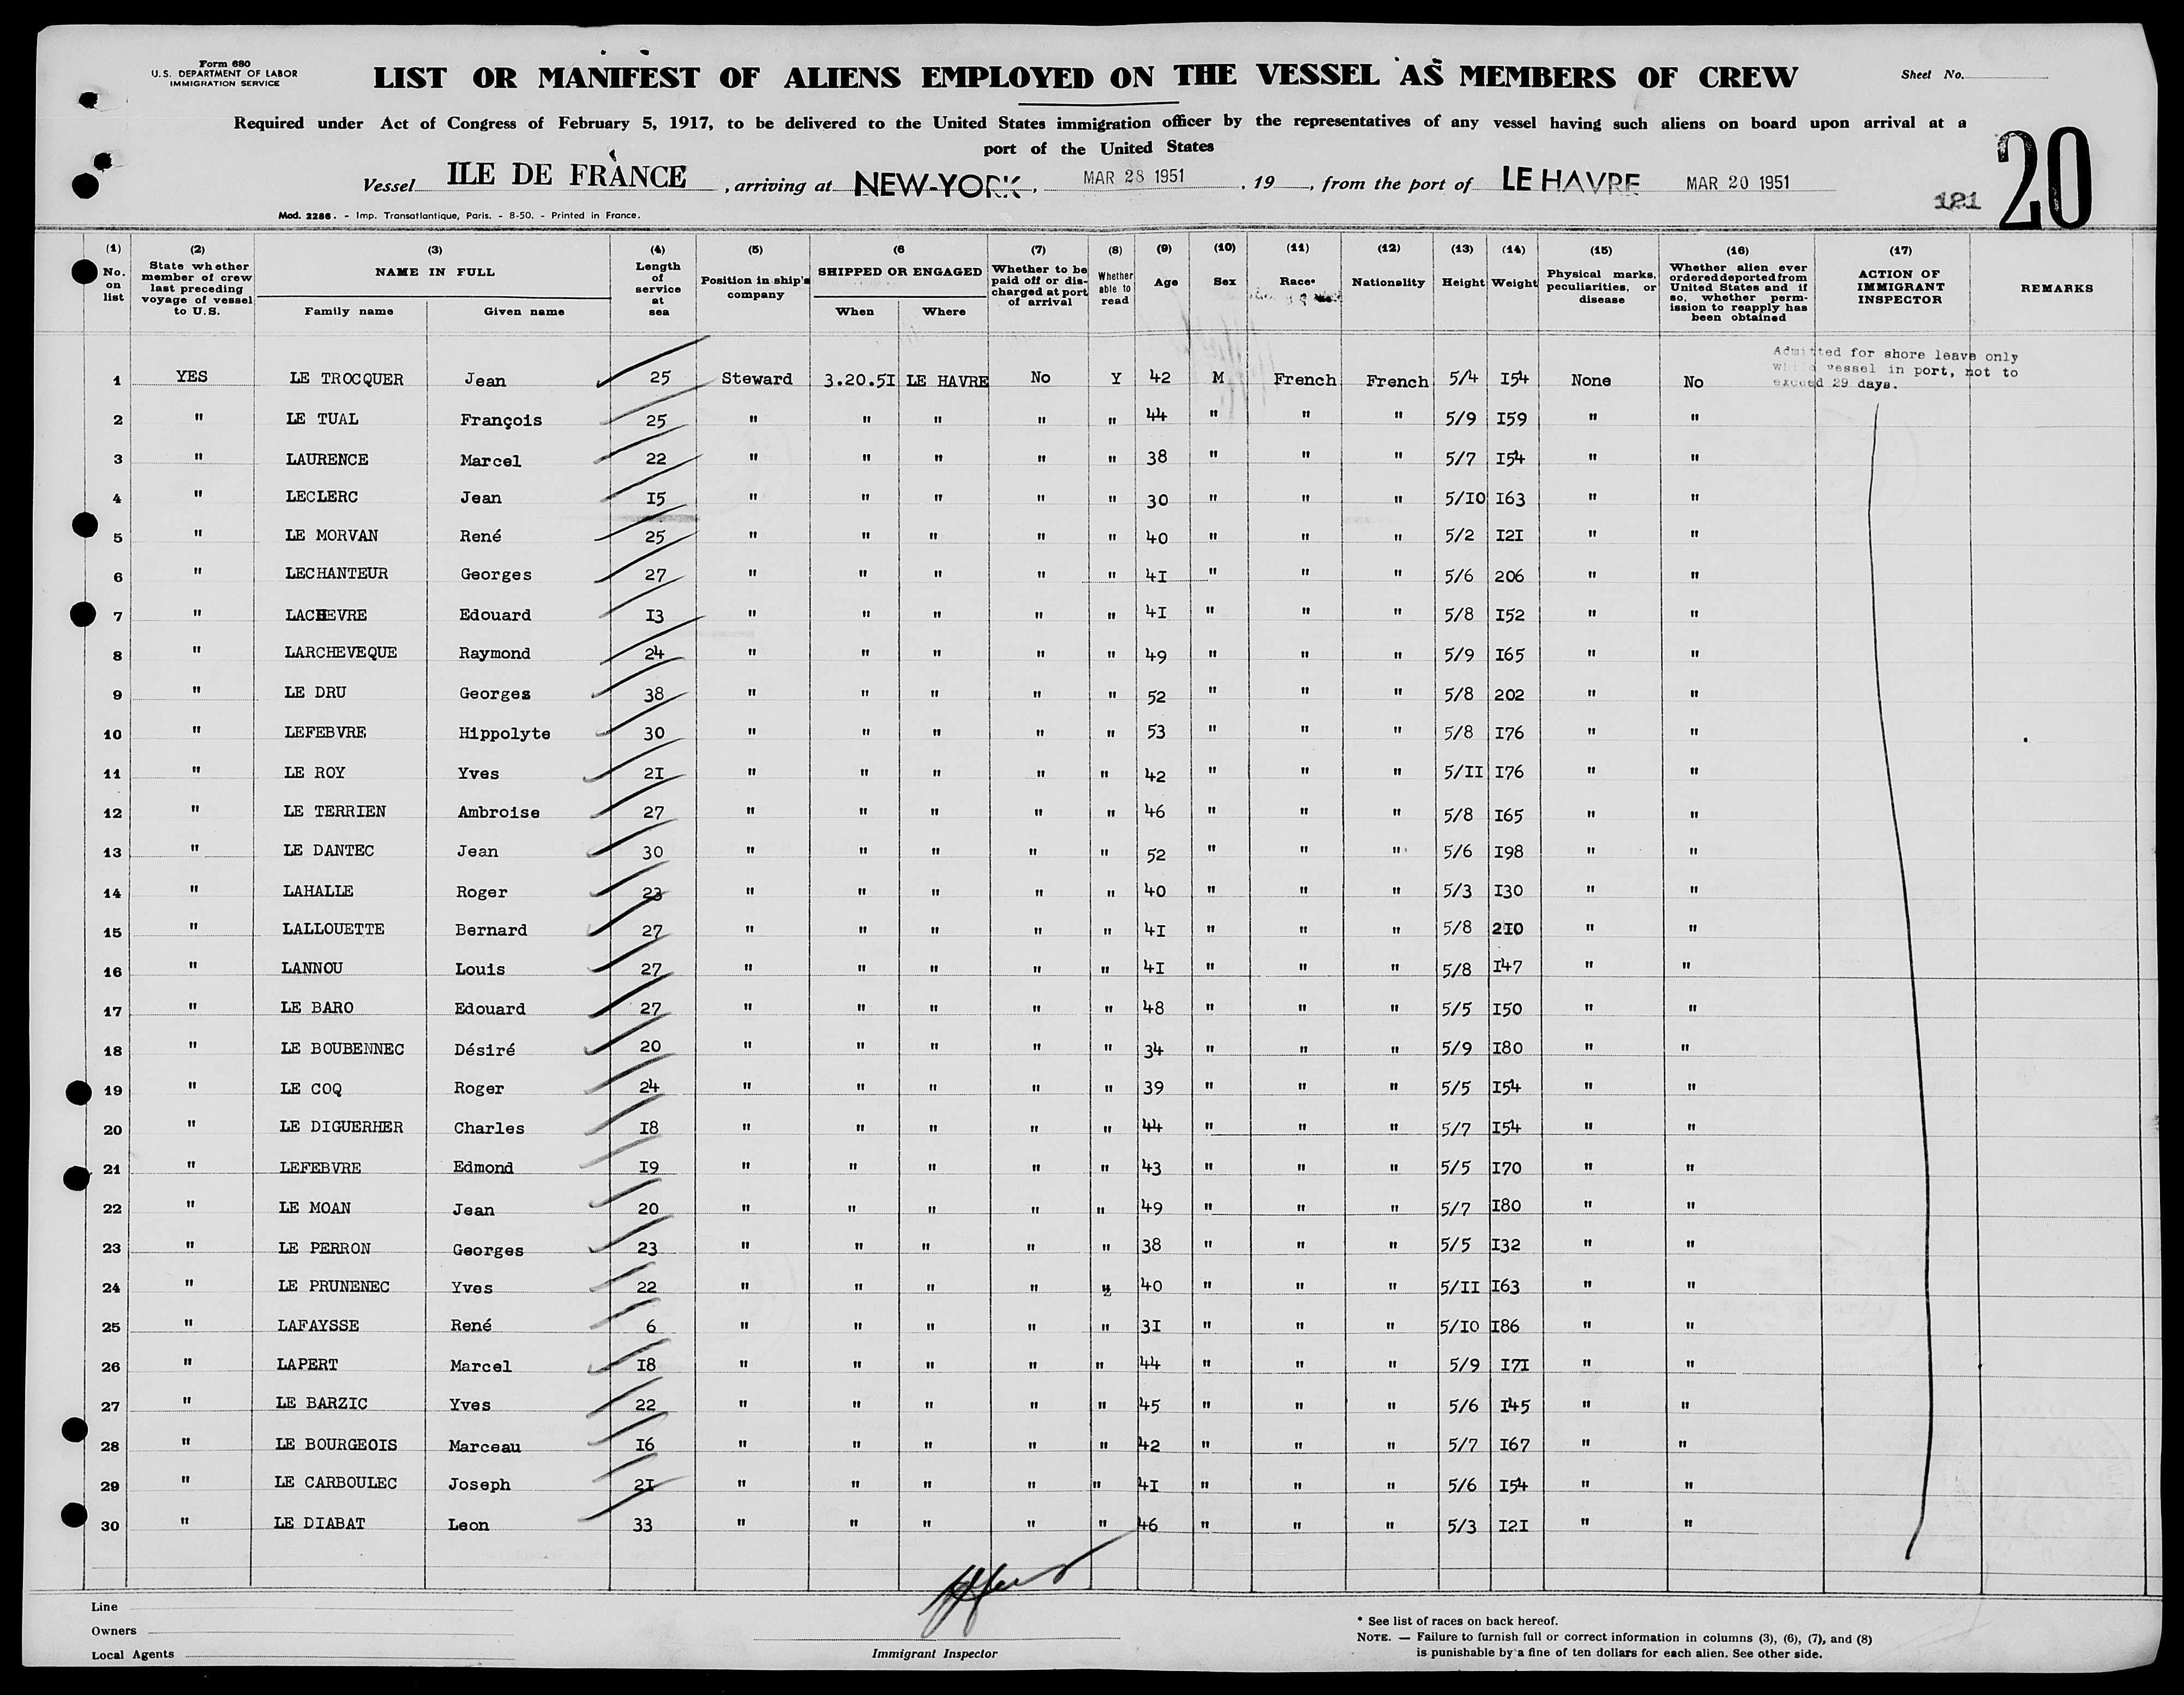 Form 680
U.S. DEPARTMENT OF LABOR
IMMIGRATION SERVICE
LIST OR MANIFEST OF ALIENS EMPLOYED ON THE VESSEL AS MEMBERS OF CREW
Sheet No.
Required under Act of Congress of February 5, 1917, to be delivered to the United States immigration officer by the representatives of any vessel having such aliens on board upon arrival at a
port of the United States
Vessel ILE DE FRANCE, arriving at NEW-YORK, MAR 28 1951, 19 , from the port of LE HAVRE MAR 20 1951
121 20
Mod. 2286. - Imp. Transatlantique, Paris. - 8-50. - Printed in France.
(1) No. on list (2) State whether member of crew last preceding voyage of vessel to U.S. (3) NAME IN FULL Family name Given name (4) Length of service at sea (5) Position in ship's company (6 SHIPPED OR ENGAGED When Where (7) Whether to be paid off or discharged at port of arrival (8) Whether able to read (9) Age (10) Sex (11) Race* (12) Nationality (13) Height (14) Weight (15) Physical marks, peculiarities, or disease (16) Whether alien ever ordered deported from United States and if so, whether permission to reapply has been obtained (17) ACTION OF IMMIGRANT INSPECTOR REMARKS
Admitted for shore leave only
while vessel in port, not to
exceed 29 days.
1 YES LE TROCQUER Jean 25 Steward 3.20.5I LE HAVRE No Y 42 M French French 5/4 I54 None No
2 " LE TUAL François 25 " " " " " 44 " " " 5/9 I59 " "
3 " LAURENCE Marcel 22 " " " " " 38 " " " 5/7 I54 " "
4 " LECLERC Jean I5 " " " " " 30 " " " 5/I0 I63 " "
5 " LE MORVAN René 25 " " " " " 40 " " " 5/2 I2I " "
6 " LECHANTEUR Georges 27 " " " " " 4I " " " 5/6 206 " "
7 " LACHEVRE Edouard I3 " " " " " 4I " " " 5/8 I52 " "
8 " LARCHEVEQUE Raymond 24 " " " " " 49 " " " 5/9 I65 " "
9 " LE DRU Georges 38 " " " " " 52 " " " 5/8 202 " "
10 " LEFEBVRE Hippolyte 30 " " " " " 53 " " " 5/8 I76 " "
11 " LE ROY Yves 2I " " " " " 42 " " " 5/II I76 " "
12 " LE TERRIEN Ambroise 27 " " " " " 46 " " " 5/8 I65 " "
13 " LE DANTEC Jean 30 " " " " " 52 " " " 5/6 I98 " "
14 " LAHALLE Roger 23 " " " " " 40 " " " 5/3 I30 " "
15 " LALLOUETTE Bernard 27 " " " " " 4I " " " 5/8 2I0 " "
16 " LANNOU Louis 27 " " " " " 4I " " " 5/8 I47 " "
17 " LE BARO Edouard 27 " " " " " 48 " " " 5/5 I50 " "
18 " LE BOUBENNEC Désiré 20 " " " " " 34 " " " 5/9 I80 " "
19 " LE COQ Roger 24 " " " " " 39 " " " 5/5 I54 " "
20 " LE DIGUERHER Charles I8 " " " " " 44 " " " 5/7 I54 " "
21 " LEFEBVRE Edmond I9 " " " " " 43 " " " 5/5 I70 " "
22 " LE MOAN Jean 20 " " " " " 49 " " " 5/7 I80 " "
23 " LE PERRON Georges 23 " " " " " 38 " " " 5/5 I32 " "
24 " LE PRUNENEC Yves 22 " " " " " 40 " " " 5/II I63 " "
25 " LAFAYSSE René 6 " " " " " 3I " " " 5/I0 I86 " "
26 " LAPERT Marcel I8 " " " " " 44 " " " 5/9 I7I " "
27 " LE BARZIC Yves 22 " " " " " 45 " " " 5/6 I45 " "
28 " LE BOURGEOIS Marceau I6 " " " " " 42 " " " 5/7 I67 " "
29 " LE CARBOULEC Joseph 2I " " " " " 4I " " " 5/6 I54 " "
30 " LE DIABAT Leon 33 " " " " " 46 " " " 5/3 I2I " "
Line
Owners
Local Agents
Immigrant Inspector
* See list of races on back hereof.
NOTE. — Failure to furnish full or correct information in columns (3), (6), (7), and (8)
is punishable by a fine of ten dollars for each alien. See other side.